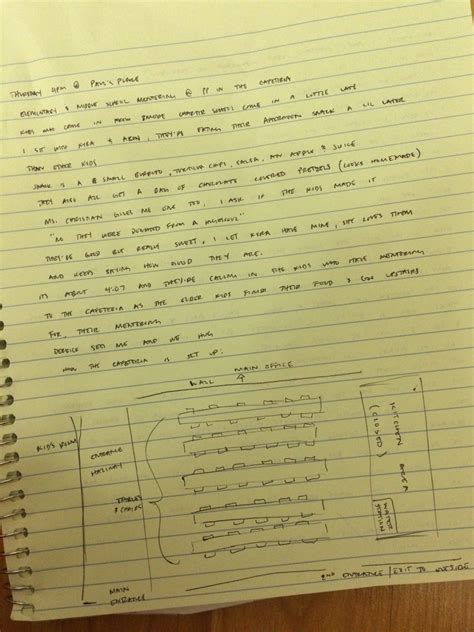 THURSDAY 4PM @ PAUL'S PLACE
ELEMENTARY & MIDDLE SCHOOL MENTORING @ PP IN THE CAFETERIA
KIDS WHO COME IN FROM CHARTER SCHOOL COME IN A LITTLE LATE
I SIT WITH KYRA & , THEY'RE EATING THEIR AFTERNOON SNACK A LIL LATER
THAN OTHER KIDS
SNACK IS A SMALL BURRITO, TORTILLA CHIPS, SALSA, AN APPLE & JUICE
THEY ALSO ALL GET A BAG OF CHOCOLATE COVERED PRETZELS (LOOKS HOMEMADE)
MS. CHRISTIAN GIVES ME ONE TOO, I ASK IF THE KIDS MADE IT
"NO THEY WERE DONATED FROM A "
THEY'RE GOOD BUT REALLY SWEET, I LET KYRA HAVE MINE, SHE LOVES THEM
AND KEEPS SAYING HOW GOOD THEY ARE.
IT'S ABOUT 4:07 AND THEY'RE CALLING IN THE KIDS WHO HAVE MENTORING
TO THE CAFETERIA AS THE OLDER KIDS FINISH THEIR FOOD & GO UPSTAIRS
FOR THEIR MENTORING
SEES ME AND WE HUG
HOW THE CAFETERIA IS SET UP:
WALL MAIN OFFICE
KID'S ROOM
ENTRANCE
HALLWAY
TABLES
& CHAIRS
KITCHEN AREA
(CLOSED)
WATER
STATION
MAIN
ENTRANCE
2ND ENTRANCE / EXIT TO OUTSIDE